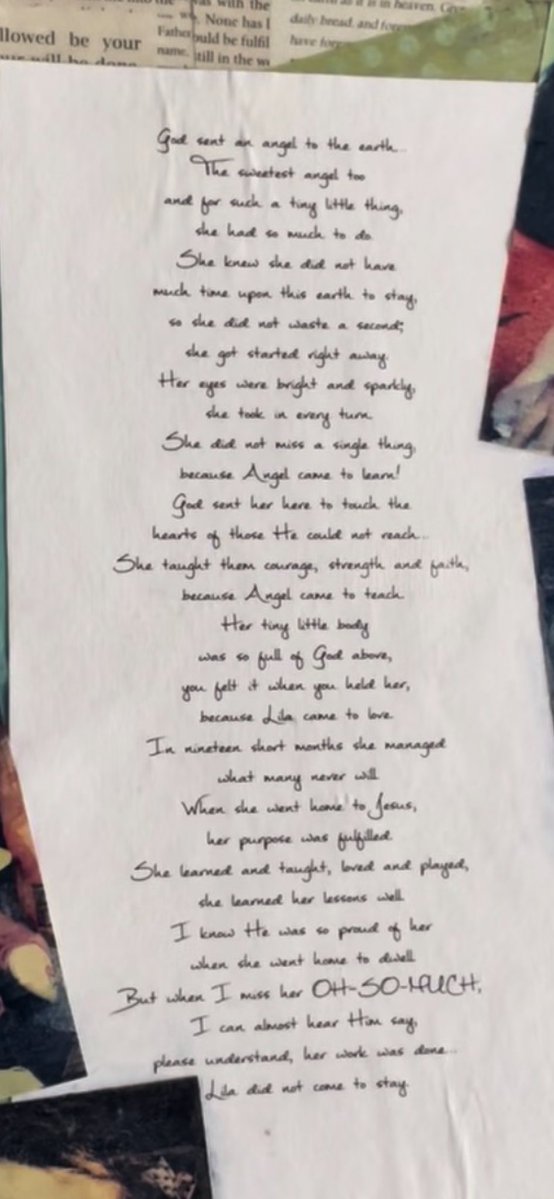 was with the
None has I
Father
ould be fulfil
name.
still in the w
llowed be your
as it is in heaven. Give
daily bread. and
have
God sent an angel to the earth...
The sweetest angel too
and for such a tiny little thing,
she had so much to do.
She knew she did not have
much time upon this earth to stay,
so she did not waste a second;
she got started right away.
Her eyes were bright and sparkly,
she took in every turn.
She did not miss a single thing,
because Angel came to learn!
God sent her here to touch the
hearts of those He could not reach...
She taught them courage, strength and faith,
because Angel came to teach.
Her tiny little body
was so full of God above,
you felt it when you held her,
because Lila came to love.
In nineteen short months she managed
what many never will.
When she went home to Jesus,
her purpose was fulfilled.
She learned and taught, loved and played,
she learned her lessons well.
I know He was so proud of her
when she went home to dwell.
But when I miss her OH-SO-MUCH,
I can almost hear Him say,
please understand, her work was done...
Lila did not come to stay.